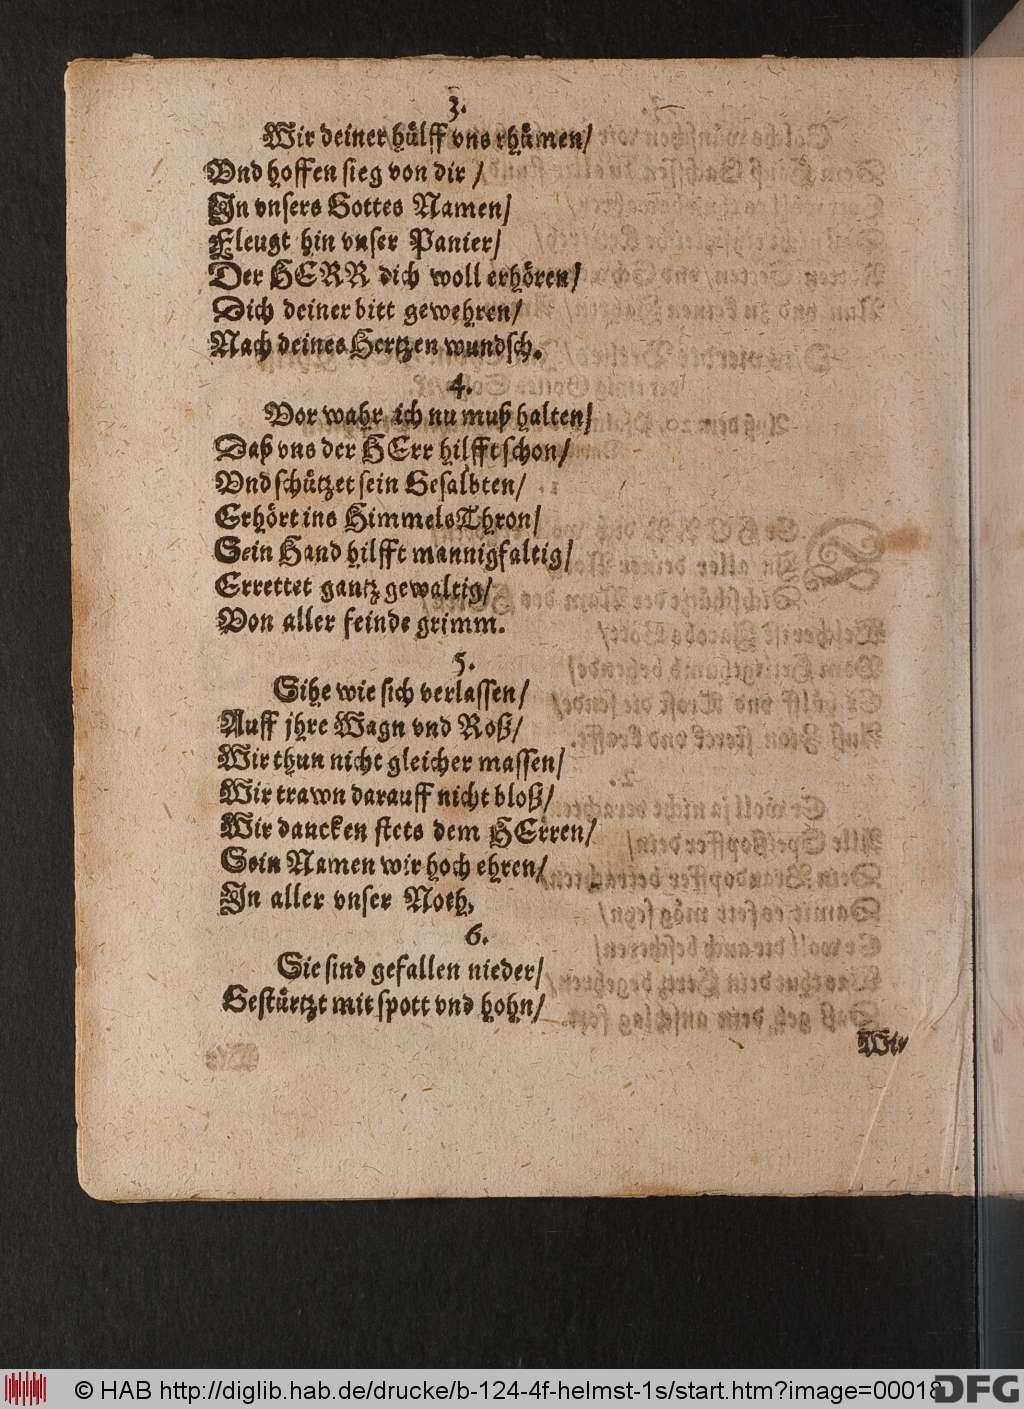 3.
Wir deiner hülff vns rhümen/
Vnd hoffen sieg von dir /
In vnsers Gottes Namen/
Fleugt hin vnser Panier/
Der HERR dich woll erhören/
Dich deiner bitt gewehren/
Nach deines Hertzen wundsch.
4.
Vor wahr ich nu muß halten/
Daß vns der HErr hilfft schon/
Vnd schützet sein Gesalbten/
Erhört ins Himmels Thron/
Sein Hand hilfft mannigfaltig/
Errettet gantz gewaltig/
Von aller feinde grimm.
5.
Sihe wie sich verlassen/
Auff jhre Wagn vnd Roß/
Wir thun nicht gleicher massen/
Wir trawn darauff nicht bloß/
Wir dancken stets dem HErren/
Sein Namen wir hoch ehren/
In aller vnser Noth.
6.
Sie sind gefallen nieder/
Gestürtzt mit spott vnd hohn/
Wir
© HAB http://diglib.hab.de/drucke/b-124-4f-helmst-1s/start.htm?image=00018
DFG